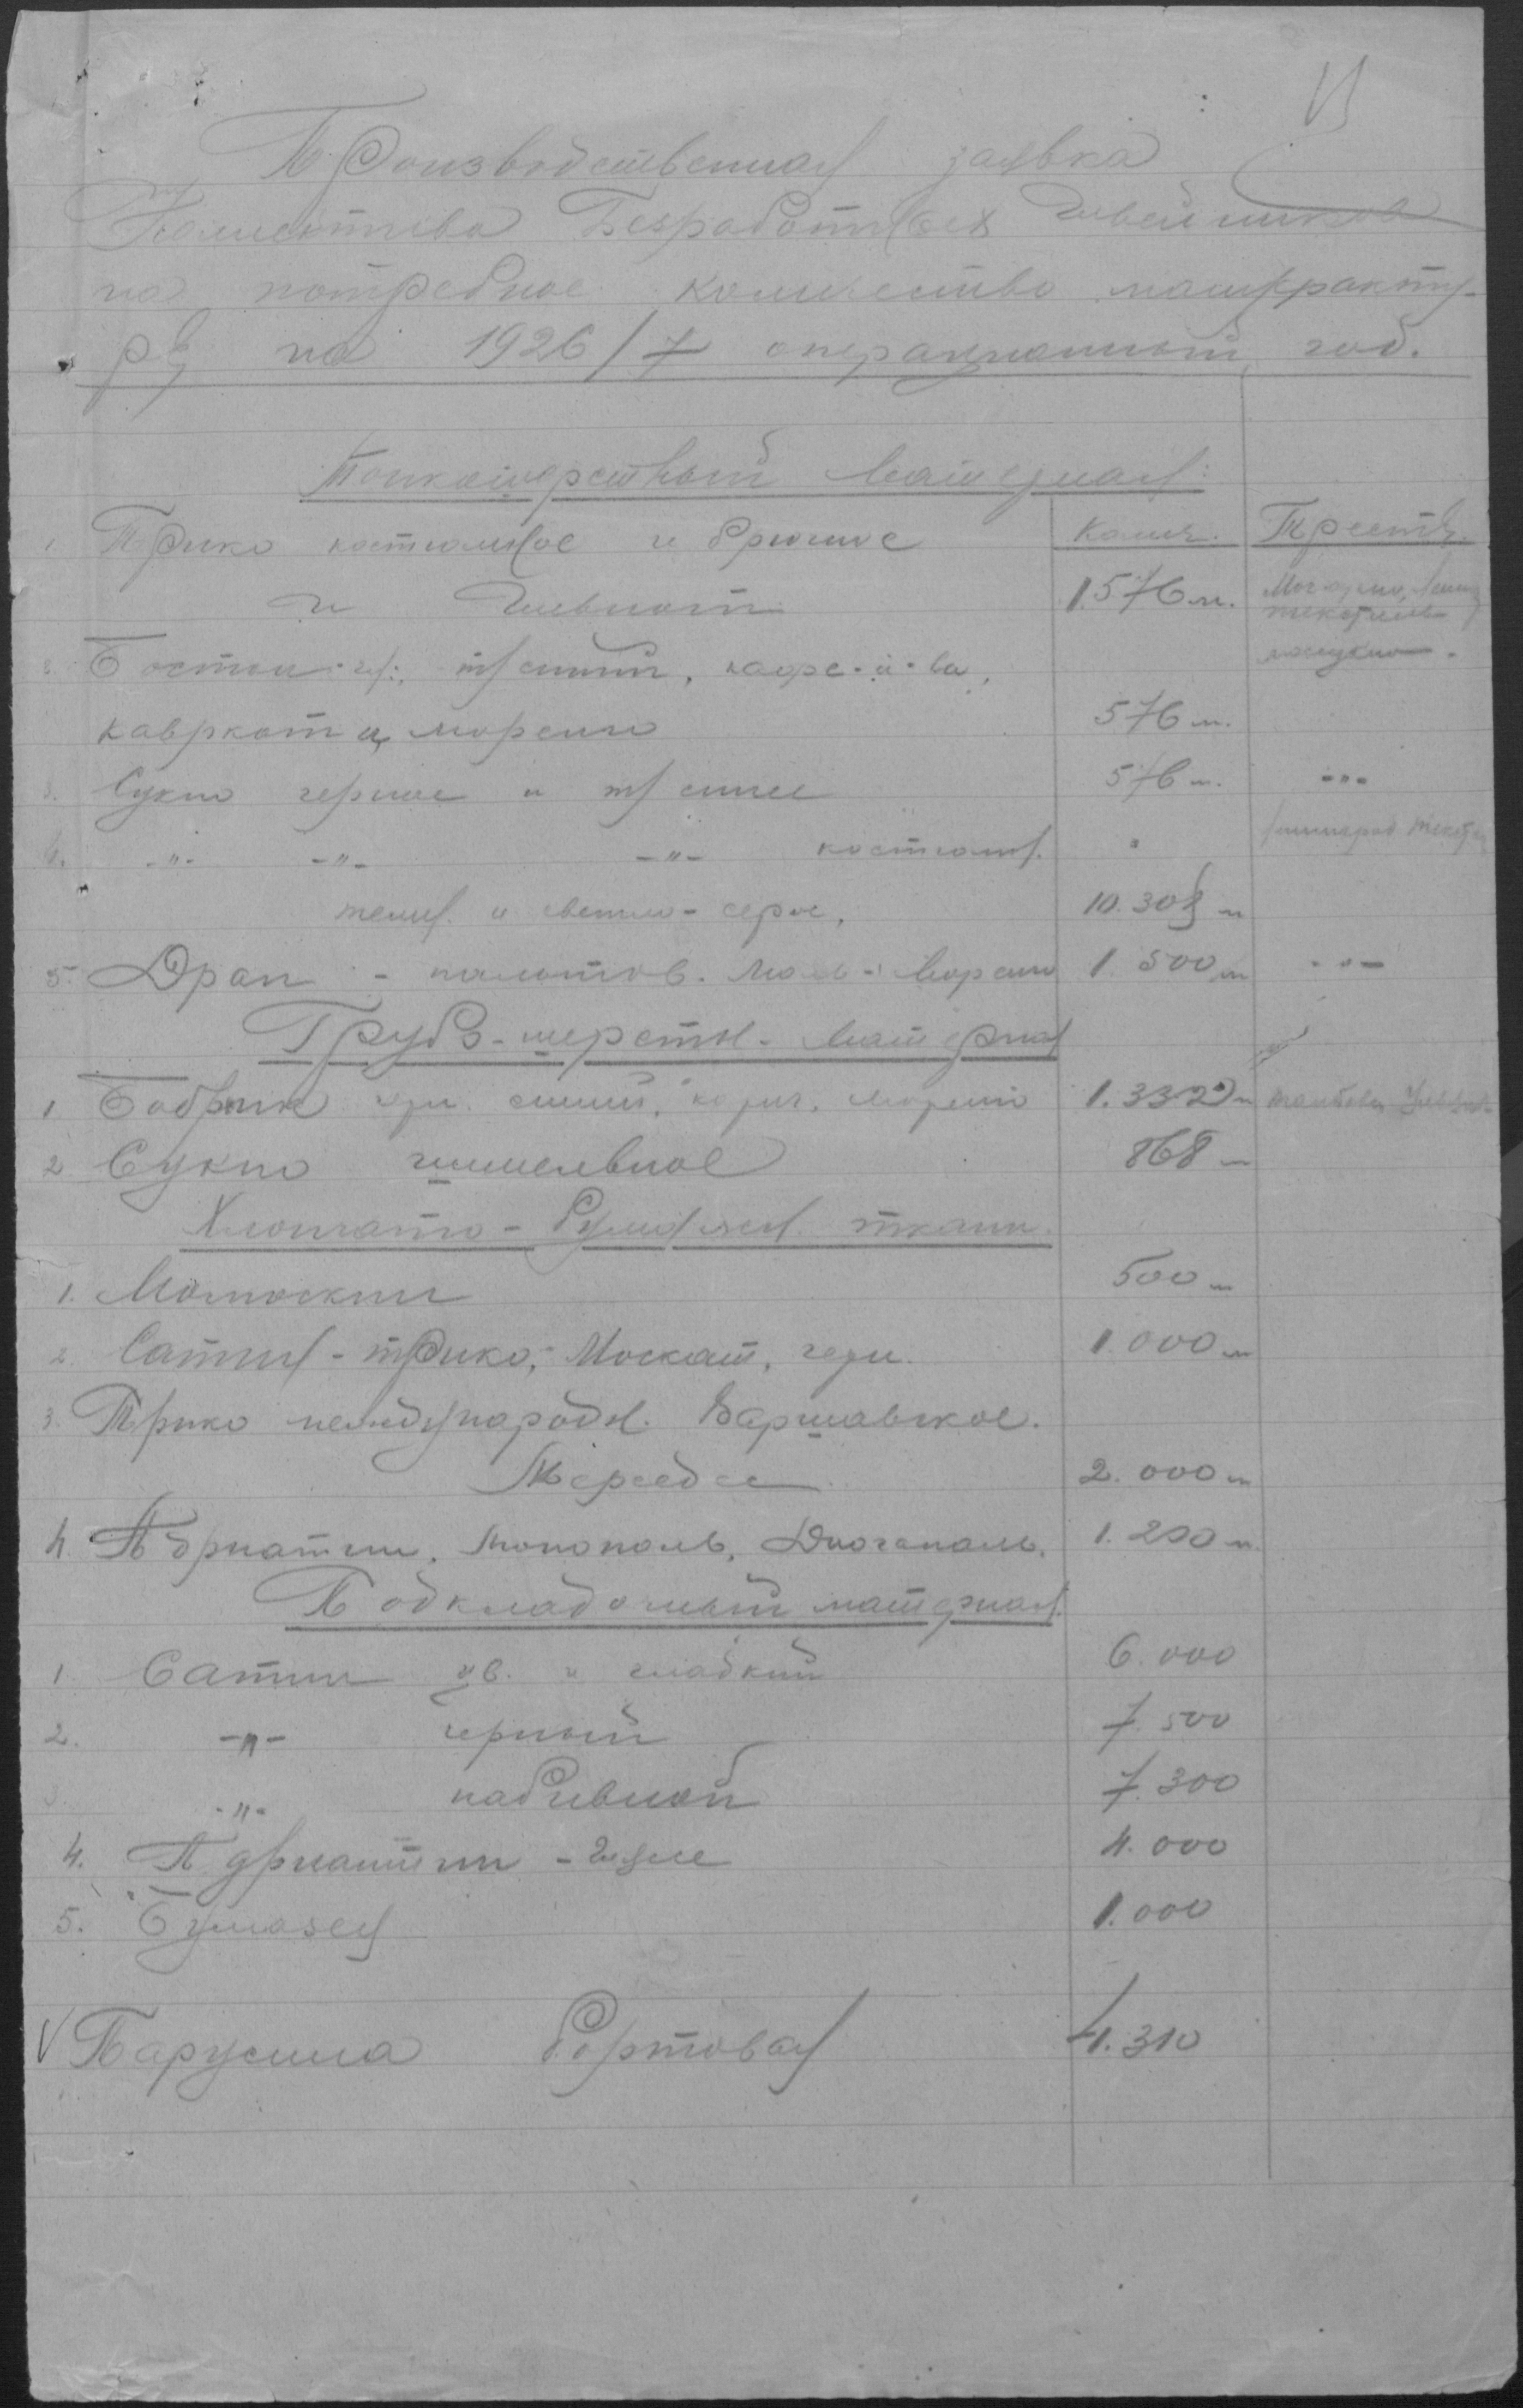 Производственная заявка
Коллектива Безработных Швейников
на потребное количество мануфакту-
ры на 1926/7 операционный год.
Тонкошерстный материал:
Колич. Тресты
1. Трико костюмное и брючное
и Шевиот 1.576 м.
2. Бостон т/синий,
каверкот и, моренго 576 м.
3. Сукно черное и т/синее 576 м. -"-
4. -"- -"- -"- костюмн.
темн. и светло-серое, 10.308 м
5. Драп - пальтов. моренго 1.500 м -"-
Грубо-шерстн. материал
1 Бобрик чер. синий, корич. моренго 1.332 м
2 Сукно шинельное 868 м
Хлопчато-бумажн. ткани.
1. Молескин 500 м
2. Сатин-трико, Москат, черн. 1.000 м
3. Трико международн. Варшавское.
Мерседес 2.000 м
4. Адриатин, Монополь, Диагональ. 1.200 м.
Подкладочный материал.
1. Сатин цв. и гладкий 6.000
2. -"- черный 7.500
3. -"- набивной 7.300
4. Адриатин 4.000
5. Бумазея 1.000
V Парусина бортовая 4.310